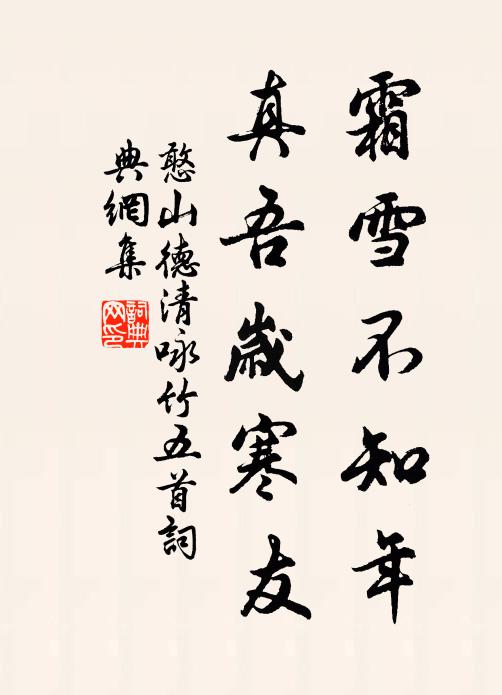 霜雪不知年
真吾歲寒友
憨山德清咏竹五首詞
典網集
詞典網印